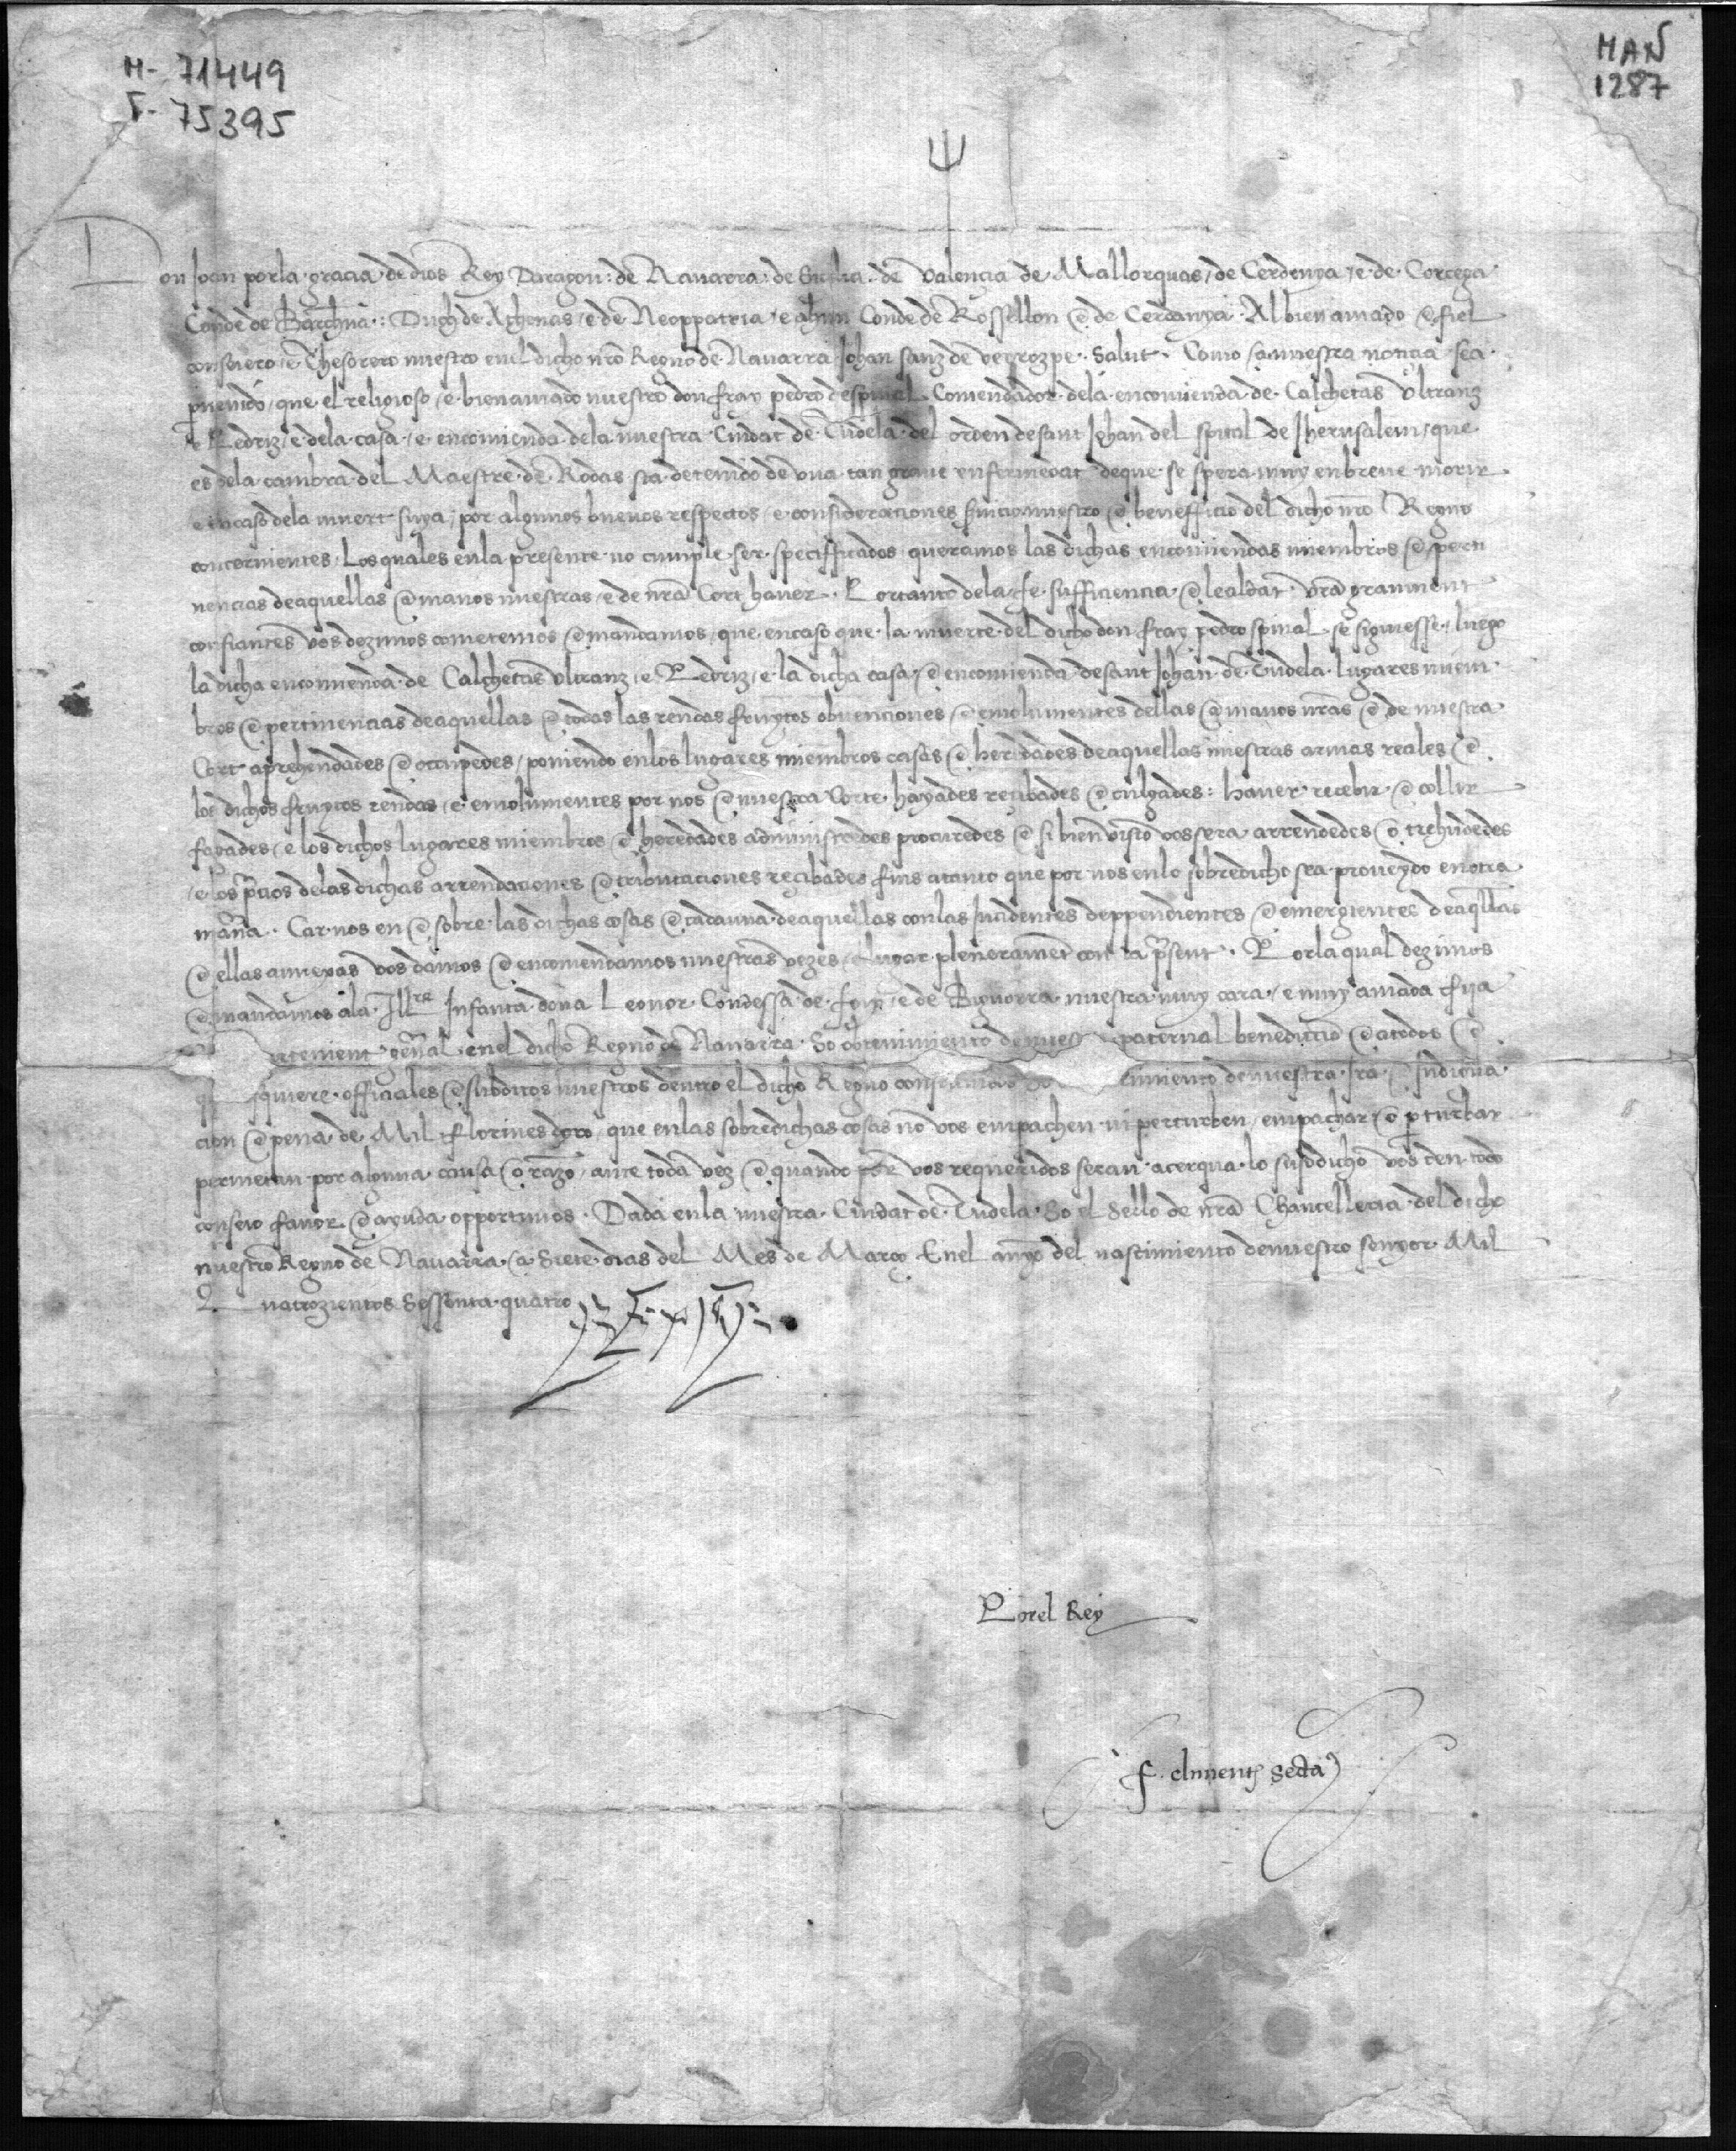 H- 71449
F- 75395
HAN
1287
Don Joan por la gracia de dios Rey Daragon: de Nauarra: de Sicilia: de Valencia de Mallorquas / de Cerdenya / e de Corcega
Conde de Barchna: Duch de Athenas / e de Neoppatria / e ahun Conde de Rossellon e de Cerdanya. Al bien amado e fiel
conseiero / e Thesorero nuestro en el dicho nro Regno de Nauarra Johan sanz de verrozpe. Salut. Como a nuestra noticia sea
preuenido / que el religioso / e bienamado nuestro don fray pedro despinal Comendador de la encomienda de Calchetas Vltranz
e Pedriz / e de la casa / e encomienda de la nuestra Ciudat de Tudela del orden de sant Johan del spital de Jherusalem / que
es de la cambra del Maestre de Rodas sta detenido de vna tan graue enfermedat de que se spera muy en breue morir
e en caso de la muert suya / por algunos buenos respectos / e consideraciones seruicio nuestro e benefficio del dicho nro Regno
concernientes. Los quales en la presente no cumple ser speciffficados queramos las dichas encomiendas miembros e perti
nencias de aquellas a manos nuestras / e de nra Cort hauer. Por tanto de la fe sufficiencia e lealdat vra granment
confiantes vos dezimos cometemos e mandamos / que en caso que la muerte del dicho don fray pedro spinal se siguiesse / luego
la dicha encomienda de Calchetas vltranz / e Pedriz / e la dicha casa / e encomienda de sant Johan de Tudela lugares miem
bros e pertinencias de aquellas e todas las rendas fruytos obuenciones / e emolumentes dellas a manos nras e de nuestra
Cort aprehendades e occupedes / poniendo en los lugares miembros casas e heredades de aquellas nuestras armas reales e
los dichos fruytos rendas / e emolumentes por nos e nuestra Corte hayades recibades e culgades: hauer recebir e collir
fagades / e los dichos lugares miembros e heredades administredes procuredes e si bien visto vos sera arrendedes o trehudedes
/ e los precios de las dichas arrendaciones e tributaciones recibades fins a tanto que por nos en lo sobredicho sea proueydo en otra
manra. Car nos en e sobre las dichas cosas e cadauna de aquellas con las Incidentes deppendientes e emergientes de aqllas
e ellas annexas vos damos e encomendamos nuestras vezes e lugar plenerament con la psent. Por la qual dezimos
e mandamos ala Illre Infanta dona Leonor Condessa de foix / e de Bigorra nuestra muy cara / e muy amada fija
rtenient genral en el dicho Regno de Nauarra. So obtenimiento de nues paternal benediccio e a todos e
squiere officiales e subditos nuestros dentro el dicho Regno constituidos timiento de nuestra Ira e Indigna
cion e pena de Mil florines doro / que en las sobredichas cosas no vos empachen ni perturben / empachar o pturbar
permetan por alguna causa o razo / ante toda vez e quando por vos requeridos seran acerqua lo susodicho vos den todo
conseio fauor e ayuda opportunos. Dada en la nuestra Ciudat de Tudela. So el Sello de nra Chancelleria del dicho
nuestro Regno de Nauarra a Siete dias del Mes de Março En el anyo del nascimiento de nuestro senyor Mil
Quatrozientos Sessenta quatro
Por el Rey
f. climent secta